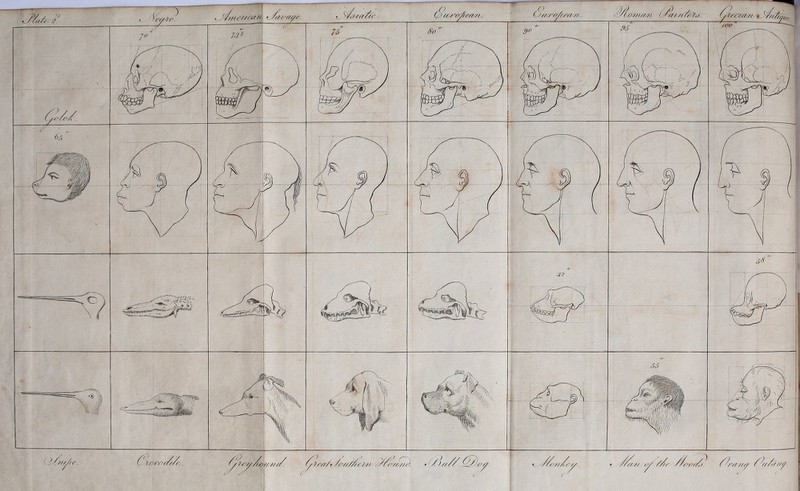 Plate. 2.
Negro.
American Savage.
Asiatic.
European.
European.
Roman Painters.
Grecian Antique.
70
73½
75
80
90
95
100
Golok.
65
42
58
55
Snipe.
Crocodile.
Greyhound.
Great Southern Hound.
Bull Dog
Monkey
Man of the Woods
Orang Outang